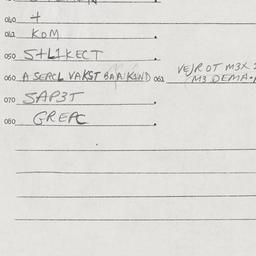 040 +
041 KOM
050 S+L1KECT
060 A SEACL VAKST BAAIKIND 061 VEJR OT M3X
M3 DEMA
070 SAP3T
080 GREAC